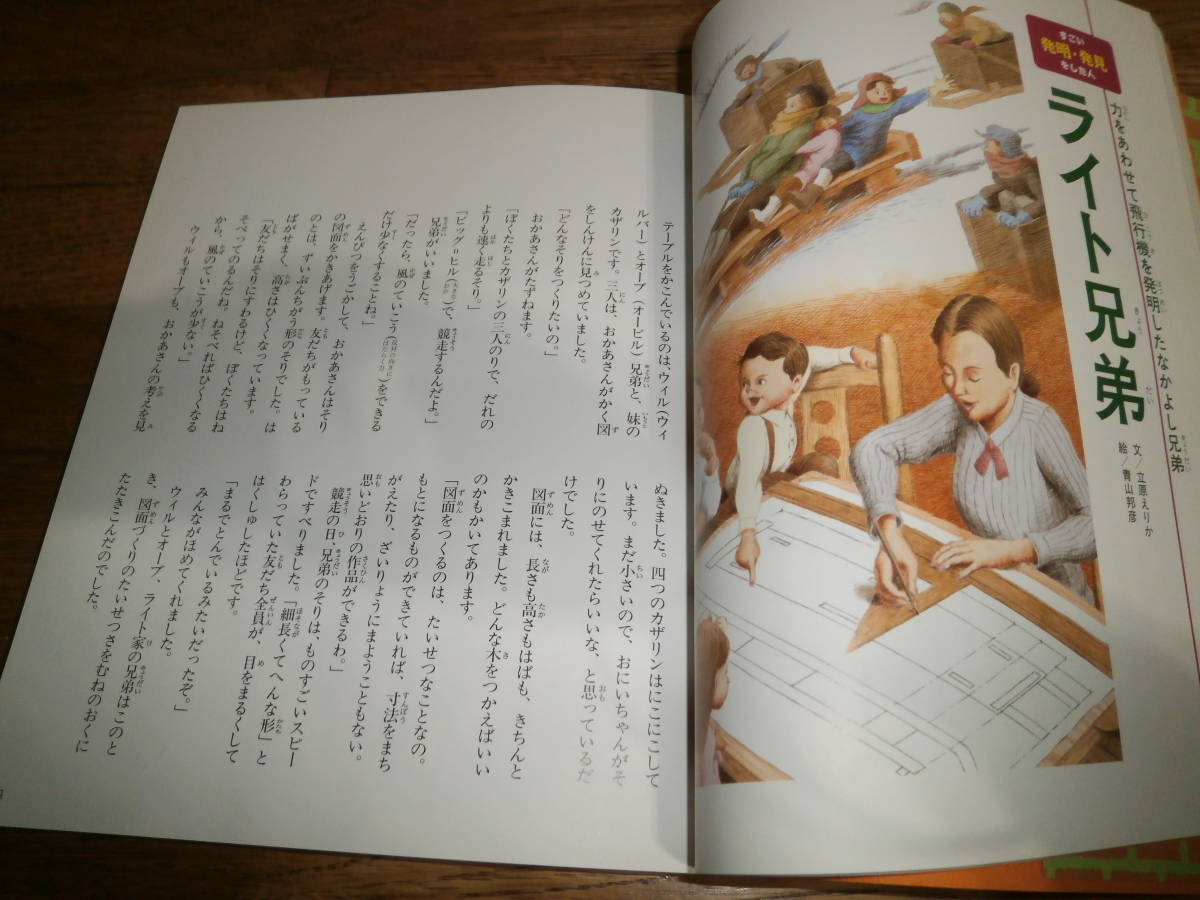 すごい
発明・発見
をした人
力をあわせて飛行機を発明したなかよし兄弟
ライト兄弟
文/立原えりか
絵/青山邦彦
テーブルをかこんでいるのは、ウィル(ウィ
ルバー)とオーブ(オービル)兄弟と、妹の
カザリンです。三人は、おかあさんがかく図
をしんけんに見つめていました。
「どんなそりをつくりたいの。」
おかあさんがたずねます。
「ぼくたちとカザリンの三人のりで、だれの
よりも速く走るそり。」
「ビッグ=ヒル(大きな丘)で、競走するんだよ。」
兄弟がいいました。
「だったら、風のていこう(反対の向きにはたらく力)をできる
だけ少なくすることね。」
えんぴつをうごかして、おかあさんはそり
の図面をかきあげます。友だちがもっている
のとは、ずいぶんちがう形のそりでした。は
ばがせまく、高さはひくくなっています。
「友だちはそりにすわるけど、ぼくたちはね
そべってのるんだね。ねそべればひくくなる
から、風のていこうが少ない。」
ウィルもオーブも、おかあさんの考えを見
ぬきました。四つのカザリンはにこにこして
います。まだ小さいので、おにいちゃんがそ
りにのせてくれたらいいな、と思っているだ
けでした。
図面には、長さも高さもはばも、きちんと
かきこまれました。どんな木をつかえばいい
のかもかいてあります。
「図面をつくるのは、たいせつなことなの。
もとになるものができていれば、寸法をまち
がえたり、ざいりょうにまようこともない。
思いどおりの作品ができるわ。」
競走の日、兄弟のそりは、ものすごいスピー
ドですべりました。「細長くてへんな形」と
わらっていた友だち全員が、目をまるくして
はくしゅしたほどです。
「まるでとんでいるみたいだったぞ。」
みんながほめてくれました。
ウィルとオーブ、ライト家の兄弟はこのと
き、図面づくりのたいせつさをむねのおくに
たたきこんだのでした。